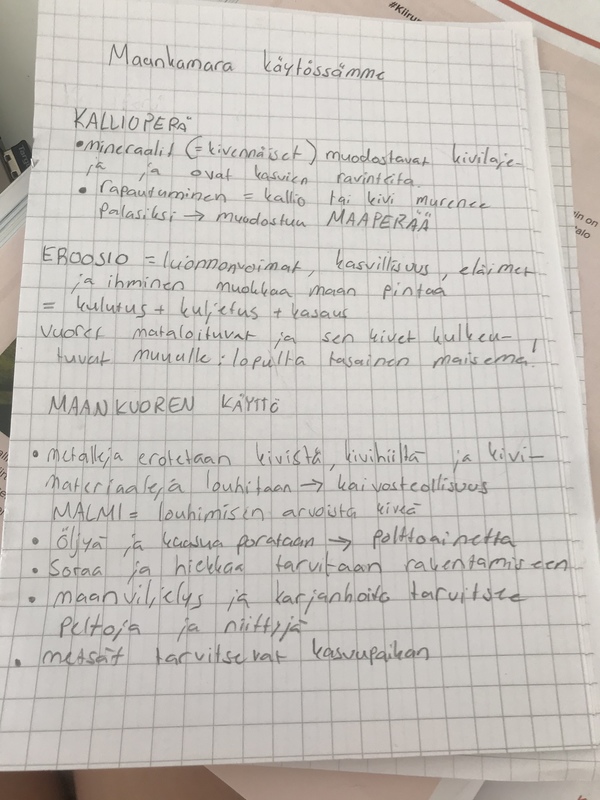 #Kiiru
Maankamara käytössämme
KALLIOPERÄ
• mineraalit (= kivennäiset) muodostavat kivilaje-
ja ja ovat kasvien ravinteita.
• rapautuminen = kallio tai kivi murenee
palasiksi → muodostuu MAAPERÄÄ
EROOSIO = luonnonvoimat, kasvillisuus, eläimet
ja ihminen muokkaa maan pintaa
= kulutus + kuljetus + kasaus
vuoret mataloituvat ja sen kivet kulkeu-
tuvat muualle: lopulta tasainen maisema!
MAANKUOREN KÄYTTÖ
• metalleja erotetaan kivistä, kivihiiltä ja kivi-
materiaaleja louhitaan → kaivosteollisuus
MALMI = louhimisen arvoista kiveä
• Öljyä ja kaasua porataan → polttoainetta
• Soraa ja hiekkaa tarvitaan rakentamiseen
• maanviljelys ja karjanhoito tarvitsee
peltoja ja niittyjä
• metsät tarvitsevat kasvupaikan
in on
alo